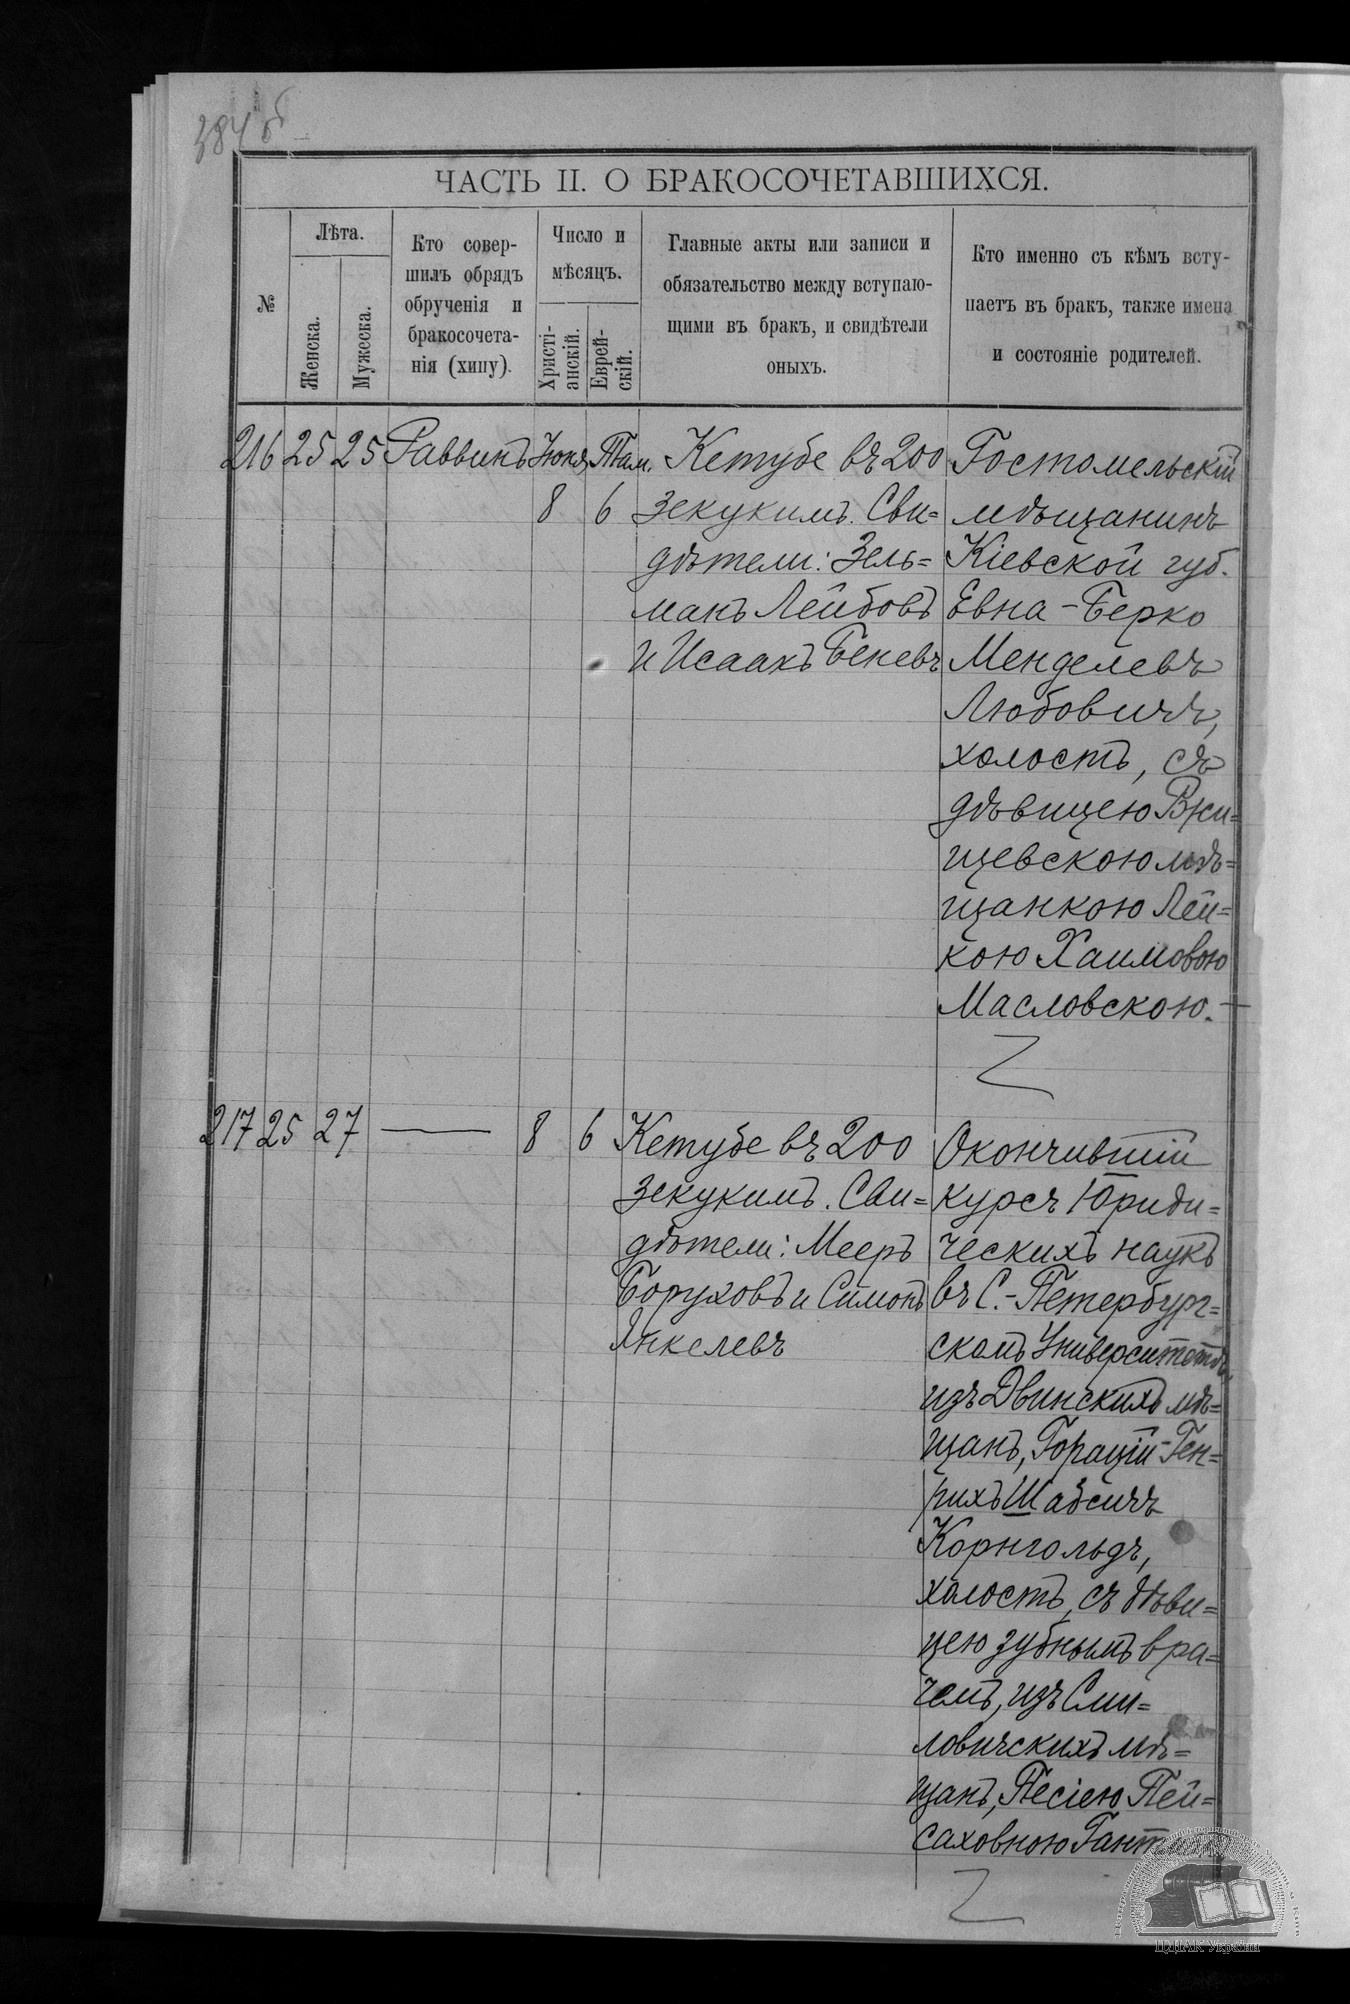 384 об
ЧАСТЬ II. О БРАКОСОЧЕТАВШИХСЯ.
№
Лѣта.
Женска.
Мужеска.
Кто совер-
шилъ обрядъ
обрученія и
бракосочета-
нія (хипу).
Число и
мѣсяцъ.
Христі-
анскій.
Еврей-
скій.
Главные акты или записи и
обязательство между вступаю-
щими въ бракъ, и свидѣтели
оныхъ.
Кто именно съ кѣмъ всту-
паетъ въ бракъ, также имена
и состояніе родителей.
216 25 25 Раввинъ Іюня Там.
8 6
Кетубе въ 200
зекукимъ. Сви=
дѣтели: Зель=
манъ Лейбовъ
и Исаакъ Беневъ
Гостомельскій
мѣщанинъ
Кіевской губ.
Евна-Берко
Менделевъ
Любовичъ,
холостъ, съ
дѣвицею Ржи=
щевскою мѣ=
щанкою Лей=
кою Хаимовою
Масловскою.—
217 25 27 — 8 6
Кетубе въ 200
зекукимъ. Сви=
дѣтели: Мееръ
Боруховъ и Симонъ
Янкелевъ
Окончившій
курсъ Юриди=
ческихъ наукъ
въ С.-Петербург=
скомъ Университетѣ,
изъ Двинскихъ мѣ=
щанъ, Горацій-Ген=
рихъ Шабсичъ
Корнгольдъ,
холостъ, съ дѣви=
цею зубнымъ вра=
чемъ, изъ Сми=
ловичскихъ мѣ=
щанъ, Песіею Пей=
саховною
ЦДІАК України